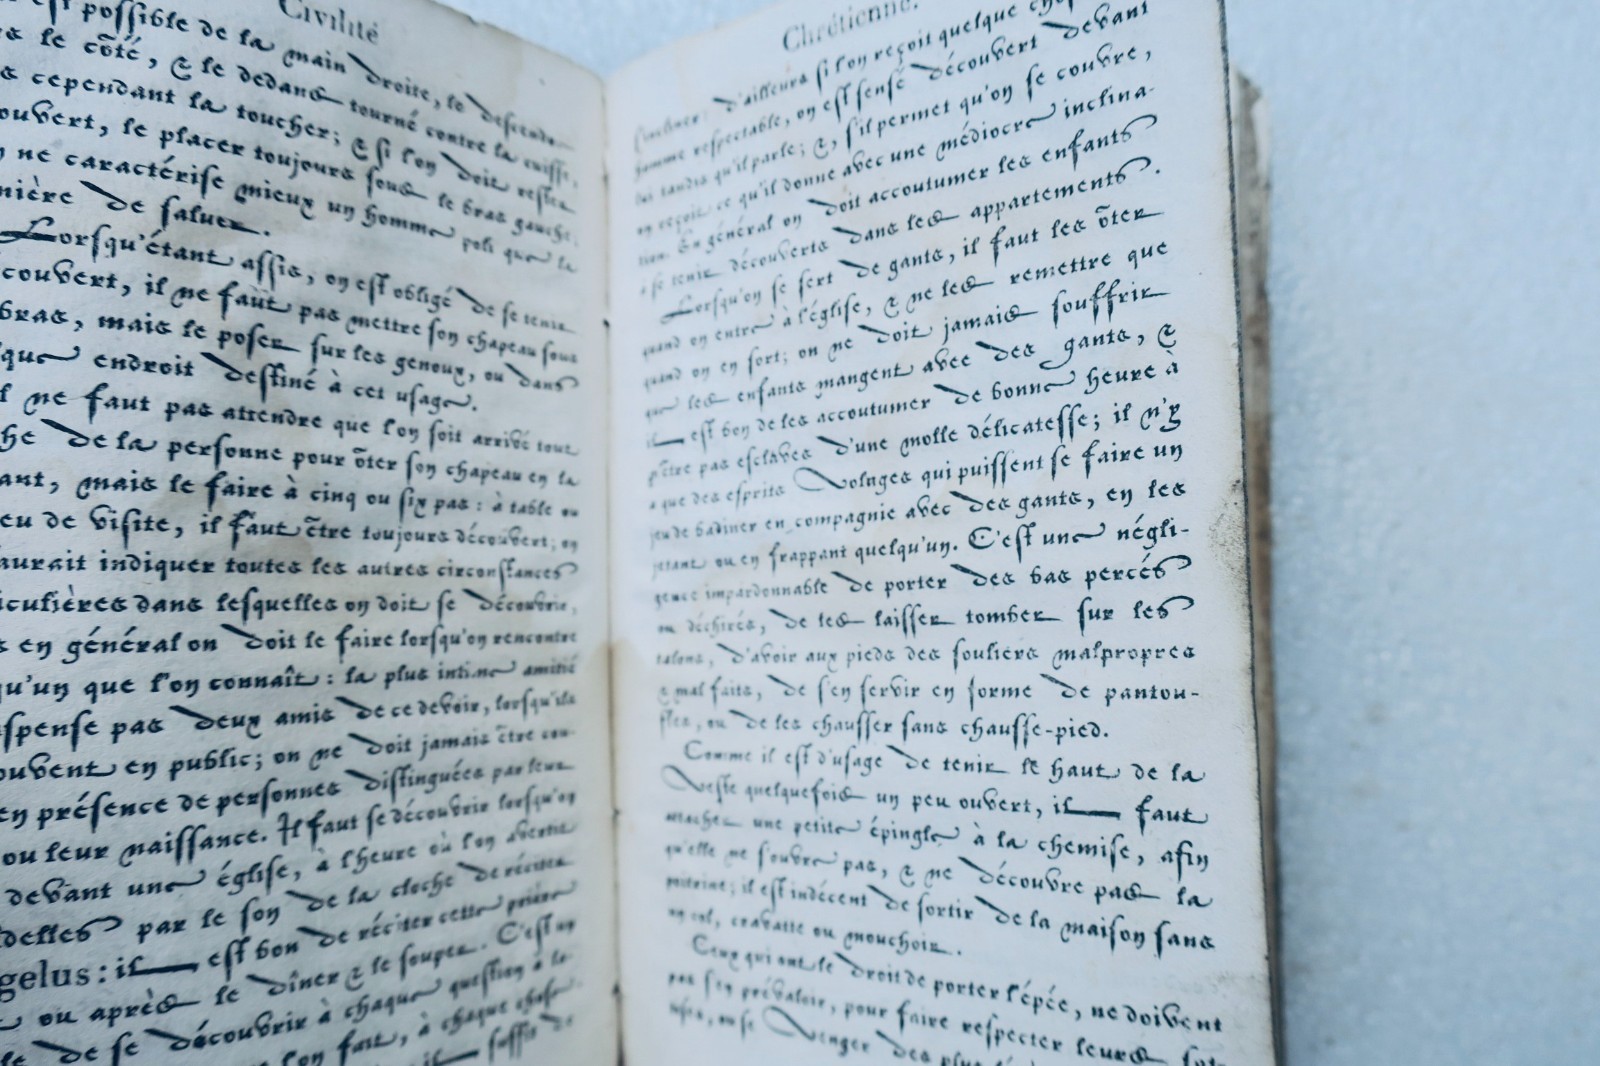 Civilité
est possible de la main droite, le descendre
le côté, & le dedans tourné contre la cuisse,
cependant la toucher; & si l'on doit rester
ouvert, le placer toujours sous le bras gauche;
ne caractérise mieux un homme poli que la
nière de saluer.
Lorsqu'étant assis, on est obligé de se tenir
couvert, il ne faut pas mettre son chapeau sous
bras, mais le poser sur les genoux, ou dans
que endroit destiné à cet usage.
l ne faut pas attendre que l'on soit arrivé tout
he de la personne pour ôter son chapeau en la
ant, mais le faire à cinq ou six pas: à table ou
eu de visite, il faut être toujours découvert; on
aurait indiquer toutes les autres circonstances
iculières dans lesquelles on doit se découvrir,
s en général on doit le faire lorsqu'on rencontre
qu'un que l'on connaît: la plus intime amitié
spense pas deux amis de ce devoir, lorsqu'ils
ouvent en public; on ne doit jamais être cou-
en présence de personnes distinguées par leur
ou leur naissance. Il faut se découvrir lorsqu'on
devant une église, à l'heure où l'on avertit
delles par le son de la cloche de réciter
gelus: il est bon de réciter cette prière
ou après le dîner & le souper. C'est un
de se découvrir à chaque question à la-
l'on fait, à chaque chose
il suffit de
Chrétienne.
s'incliner: d'ailleurs si l'on reçoit quelque
homme respectable, on est sensé découvert devant
lui tandis qu'il parle; &, s'il permet qu'on se couvre,
on reçoit ce qu'il donne avec une médiocre inclina-
tion. En général on doit accoutumer les enfants
à se tenir découverts dans les appartements.
Lorsqu'on se sert de gants, il faut les ôter
quand on entre à l'église, & ne les remettre que
quand on en sort; on ne doit jamais souffrir
que les enfants mangent avec des gants, &
il est bon de les accoutumer de bonne heure à
n'être pas esclaves d'une molle délicatesse; il n'y
a que des esprits volages qui puissent se faire un
jeu de badiner en compagnie avec des gants, en les
jetant ou en frappant quelqu'un. C'est une négli-
gence impardonnable de porter des bas percés
ou déchirés, de les laisser tomber sur les
talons, d'avoir aux pieds des souliers malpropres
& mal faits, de s'en servir en forme de pantou-
fles, ou de les chausser sans chausse-pied.
Comme il est d'usage de tenir le haut de la
veste quelquefois un peu ouvert, il faut
attacher une petite épingle à la chemise, afin
qu'elle ne s'ouvre pas, & ne découvre pas la
poitrine; il est indécent de sortir de la maison sans
un col, cravatte ou mouchoir.
Ceux qui ont le droit de porter l'épée, ne doivent
pas s'en prévaloir, pour faire respecter leurs
ou se venger des